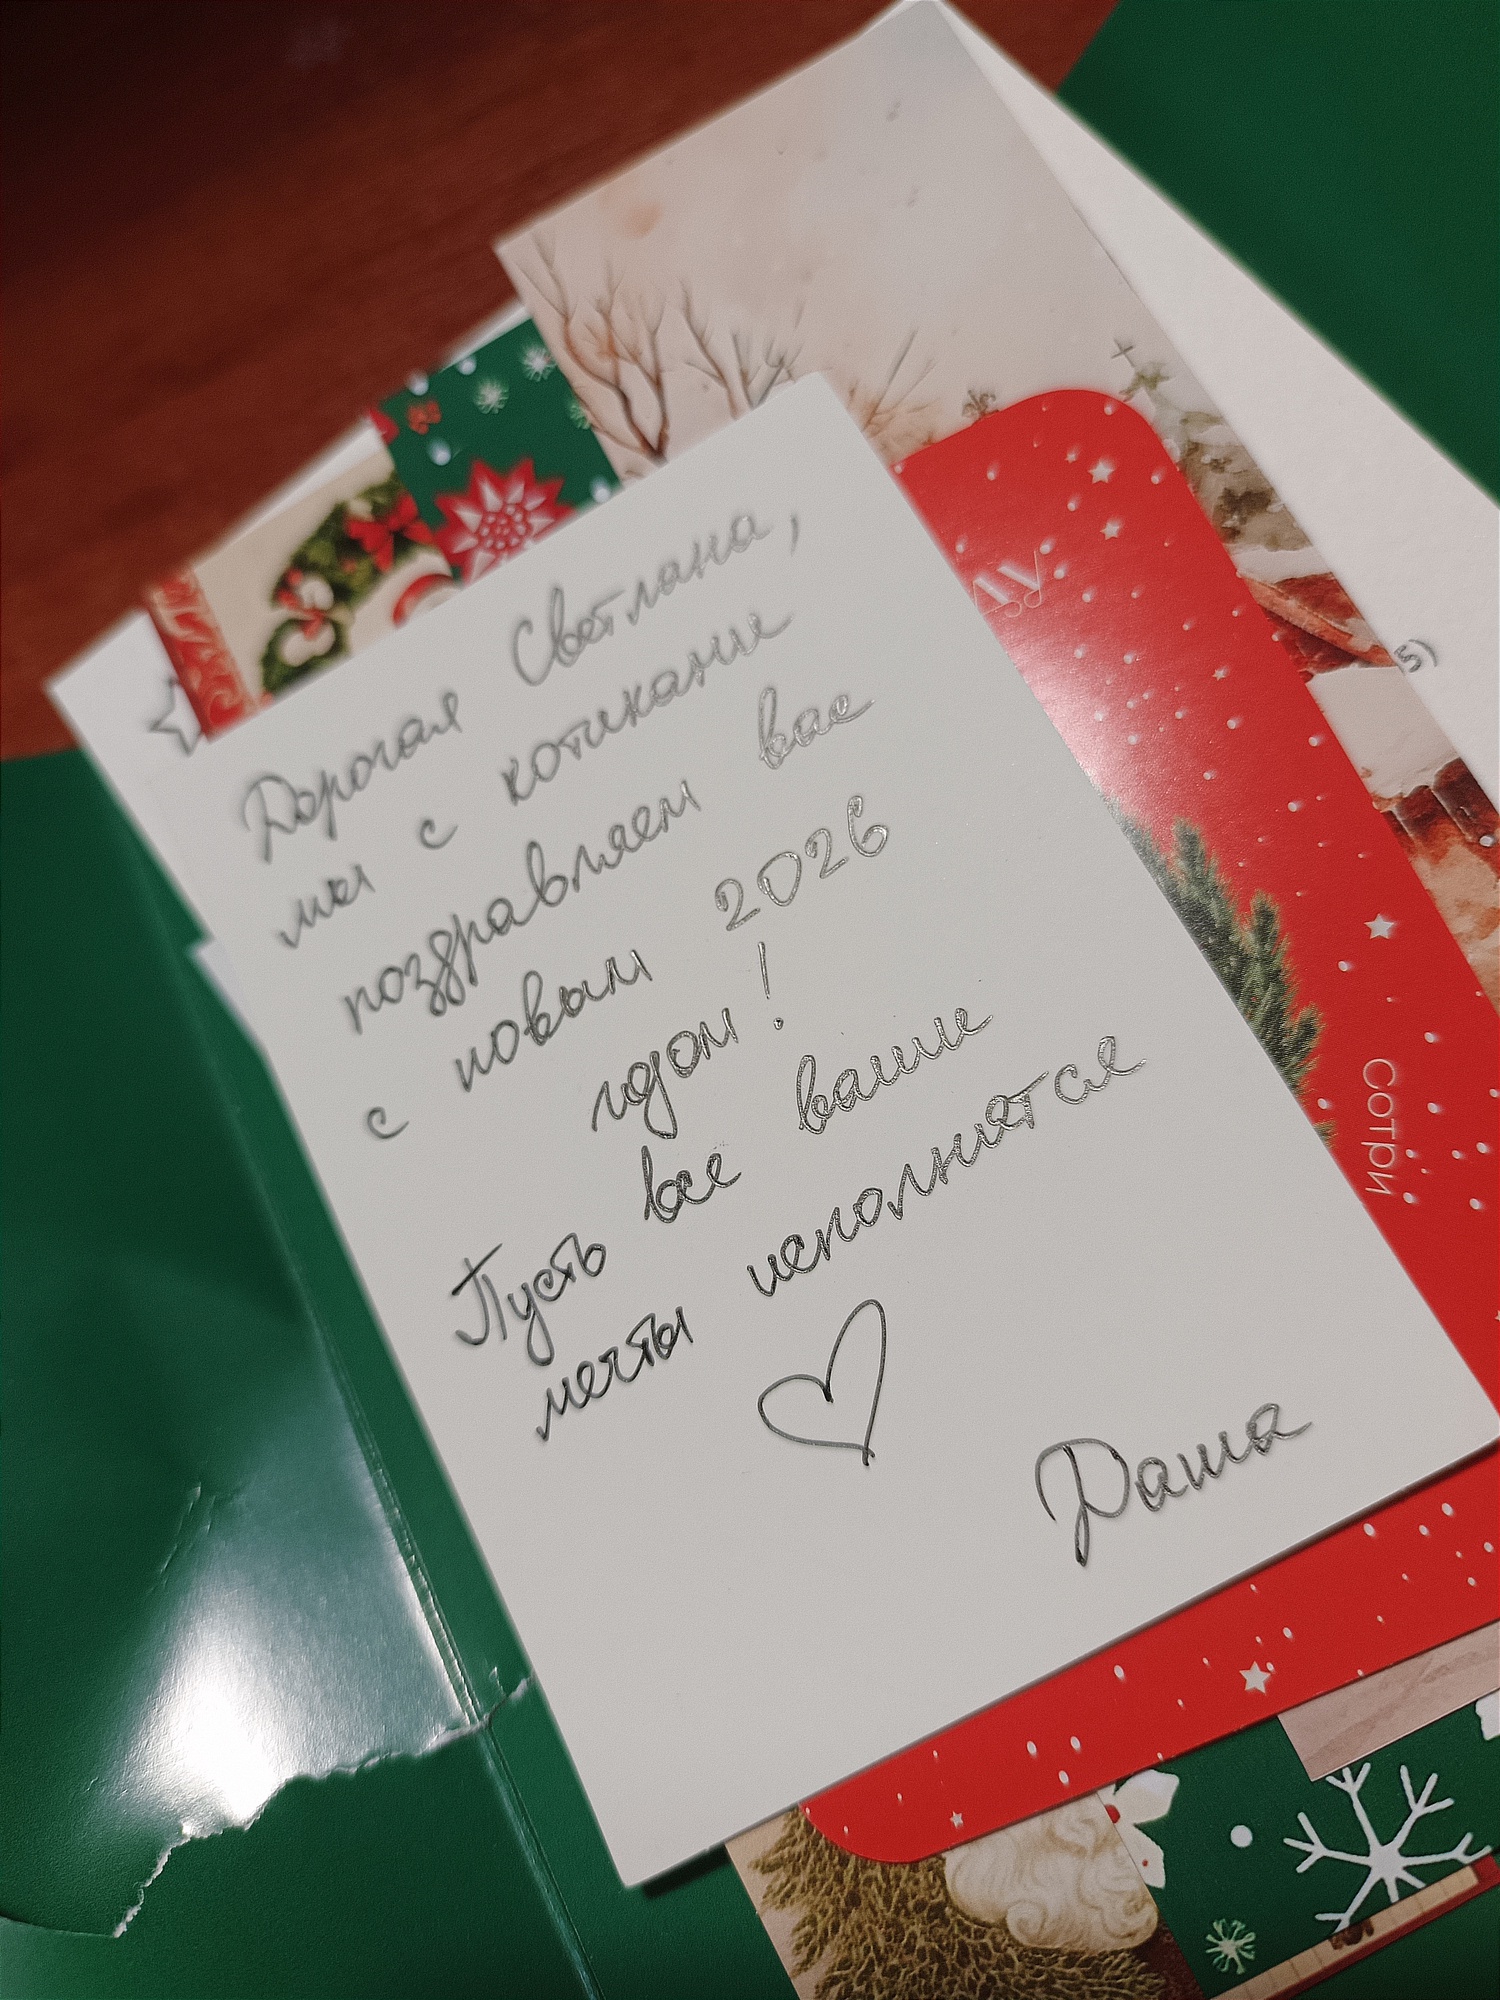 Дорогая Светлана,
мы с котиками
поздравляем вас
с новым 2026
годом!
Пусть все ваши
мечты исполнятся
Даша
ду
сотри
5)